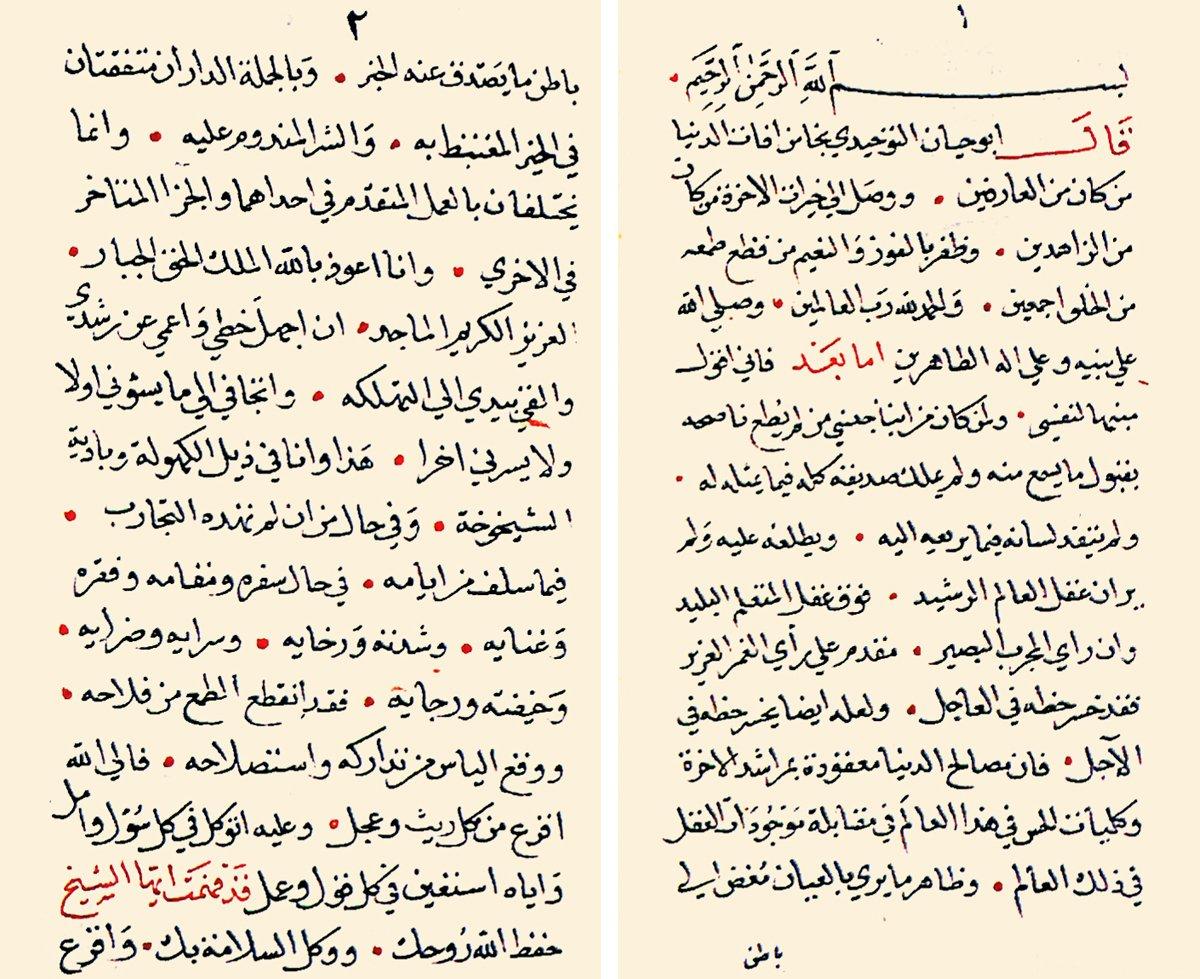 ١
بسم الله الرحمن الرحيم
قال ابو حيان التوحيدي نجا من افات الدنيا
من كان من العارفين • ووصل الي خيرات الاخرة من كان
من الزاهدين • وظفر بالفوز والنعيم من قطع طمعه
من الخلق اجمعين • والحمد لله رب العالمين • وصلي الله
علي نبيه وعلي اله الطاهرين اما بعد فاني اقول
منبها لنفسي • ولمن كان من ابناء جنسي من لم يطع ناصحه
بقبول ما يسمع منه ولم يملك صديقه كله فيما يمثله له •
ولم ينقد لبيانه فيما يريغه اليه • ويطلعه عليه ولم
ير ان عقل العالم الرشيد • فوق عقل المتعلم البليد
وان راي المجرب البصير • مقدم علي رأي الغمر الغرير
فقد خسر حظه في العاجل • ولعله ايضا يخسر حظه في
الآجل • فان مصالح الدنيا معقودة بمراشد الاخرة
وكليات الحس في هذا العالم في مقابلة موجودات العقل
في ذلك العالم • وظاهر ما يري بالعيان مفض الي
باطن
٢
باطن ما يصدق عنه الخبر • وبالجملة الداران متفقتان
في الخير المغتبط به • والشر المندوم عليه • وانما
يختلفان بالعمل المتقدم في احداهما والجزا المتاخر
في الاخري • وانا اعوذ بالله الملك الحق الجبار •
العزيز الكريم الماجد • ان اجهل حظي واعمي عن رشدي
والقي بيدي الي التهلكه • واتجافي الي ما يسؤني اولا
ولا يسرني اخرا • هذا وانا في ذيل الكهولة وبادية
الشيخوخة • وفي حال من ان لم تهده التجارب •
فيما سلف من ايامه • في حال سفره ومقامه وفقره
وغنايه • وشدته ورخايه • وسرايه وضرايه •
وخيفته ورجايه • فقد انقطع الطمع من فلاحه •
ووقع الياس من تداركه واستصلاحه • فالي الله
افزع من كل ريث وعجل • وعليه اتوكل في كل سؤل وامل
واياه استعين في كل قول وعمل قد فهمت ايها الشيخ
حفظ الله روحك • ووكل السلامة بك • وافرغ